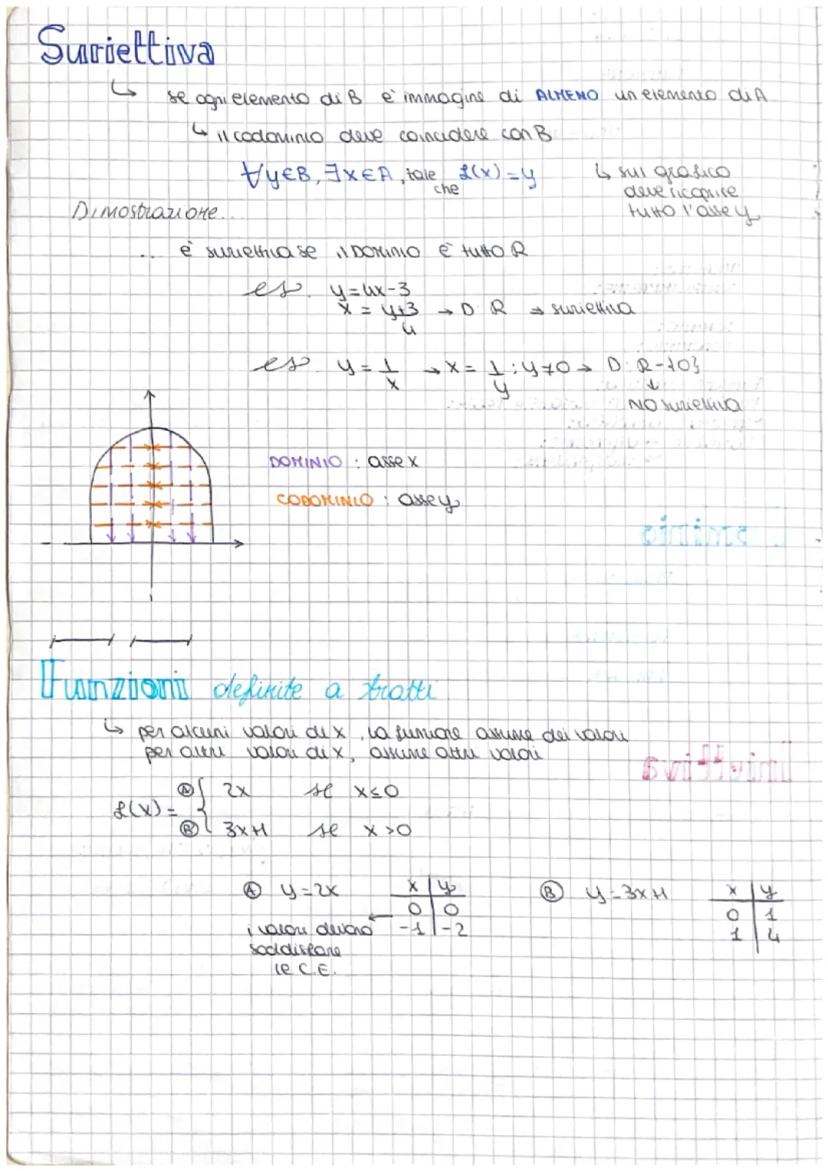 Suriettiva
↳ se ogni elemento di B e' immagine di ALMENO un elemento di A
↳ il codominio deve coincidere con B
∀y∈B, ∃x∈A, tale che f(x)=y
↳ sul grafico
deve ricoprire
tutto l'asse y
Dimostrazione...
... è suriettiva se il DOMINIO è tutto R
es. y=4x-3
x = y+3/4 → D: R → suriettiva
es. y=1/x → x=1/y : y≠0 → D: R-{0}
↓
NO suriettiva
DOMINIO : asse x
CODOMINIO : asse y
Funzioni definite a tratti
↳ per alcuni valori di x, la funzione assume dei valori
per altri valori di x, assume altri valori
f(x)= {
Ⓐ 2x se x≤0
Ⓑ 3x+1 se x>0
Ⓐ y=2x
x | y
0 | 0
-1 | -2
i valori devono ←
soddisfare
le C.E.
Ⓑ y=3x+1
x | y
0 | 1
1 | 4